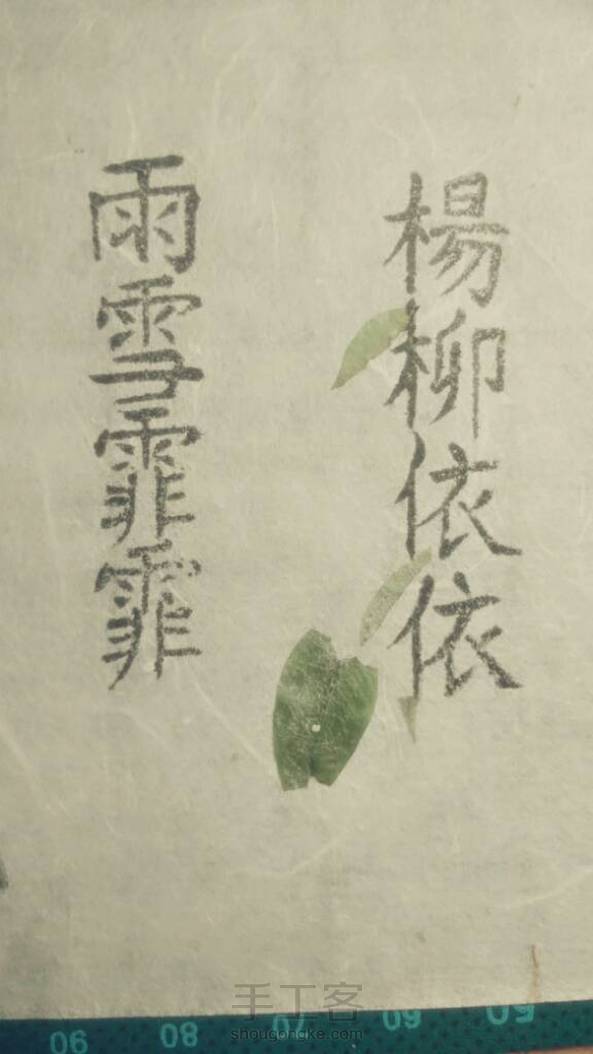 楊柳依依
雨雪霏霏
手工客
shougongke.com
90
80
70
60
50